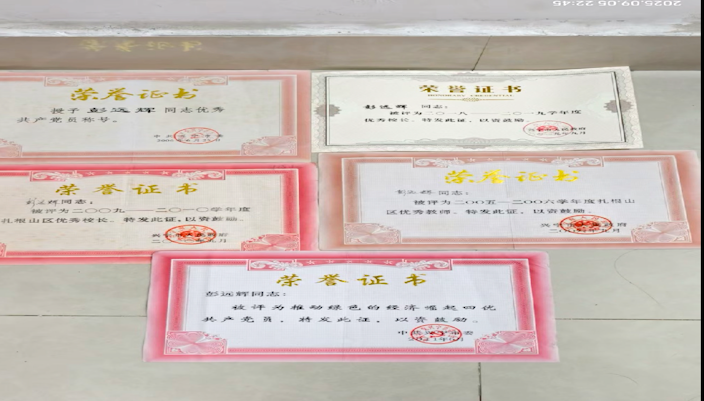 2025.09.05 22:45
荣誉证书
授予 彭远辉 同志优秀
共产党员称号。
荣誉证书
彭远辉 同志:
被评为二〇一八—二〇一九学年度
优秀校长。特发此证,以资鼓励
荣誉证书
同志:
被评为二〇〇九—二〇一〇学年度
扎根山区优秀校长。特发此证,以资鼓励。
荣誉证书
彭远辉同志:
被评为二〇〇五—二〇〇六学年度扎根山
区优秀教师。特发此证,以资鼓励。
荣誉证书
彭远辉同志:
被评为推动绿色的经济崛起四优
共产党员。特发此证,以资鼓励。